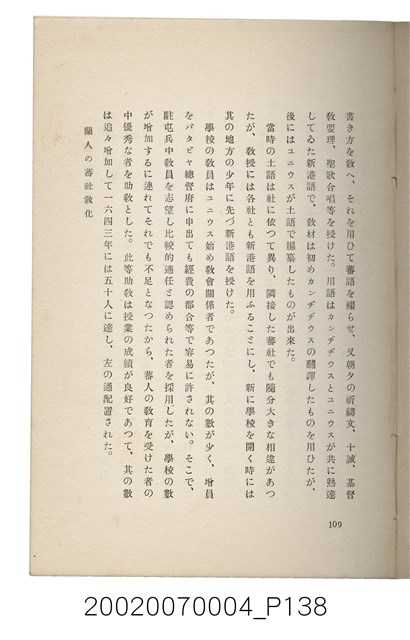 書き方を敎へ、それを用ひて蕃語を綴らせ、又朝夕の祈禱文、十誡、基督
敎要理、聖歌合唱等を授けた。用語はカンヂヂウスとユニウスが共に熟達
してゐた新港語で、敎材は初めカンヂヂウスの飜譯したものを用ひたが、
後にはユニウスが土語で編纂したものが出來た。
當時の土語は社に依つて異り、隣接した蕃社でも隨分大きな相違があつ
たが、敎授には各社とも新港語を用ふることにし、新に學校を開く時には
其の地方の少年に先づ新港語を授けた。
學校の敎員はユニウス始め敎會關係者であつたが、其の數が少く、增員
をバタビヤ總督府に申出ても經費の都合等で容易に許されない。そこで、
駐屯兵中敎員を志望し比較的適任と認められた者を採用したが、學校の數
が增加するに連れてそれでも不足となつたから、蕃人の敎育を受けた者の
中優秀な者を助敎とした。此等助敎は授業の成績が良好であつて、其の數
は追々增加して一六四三年には五十人に達し、左の通配置された。
蘭人の蕃社敎化
109
20020070004_P138